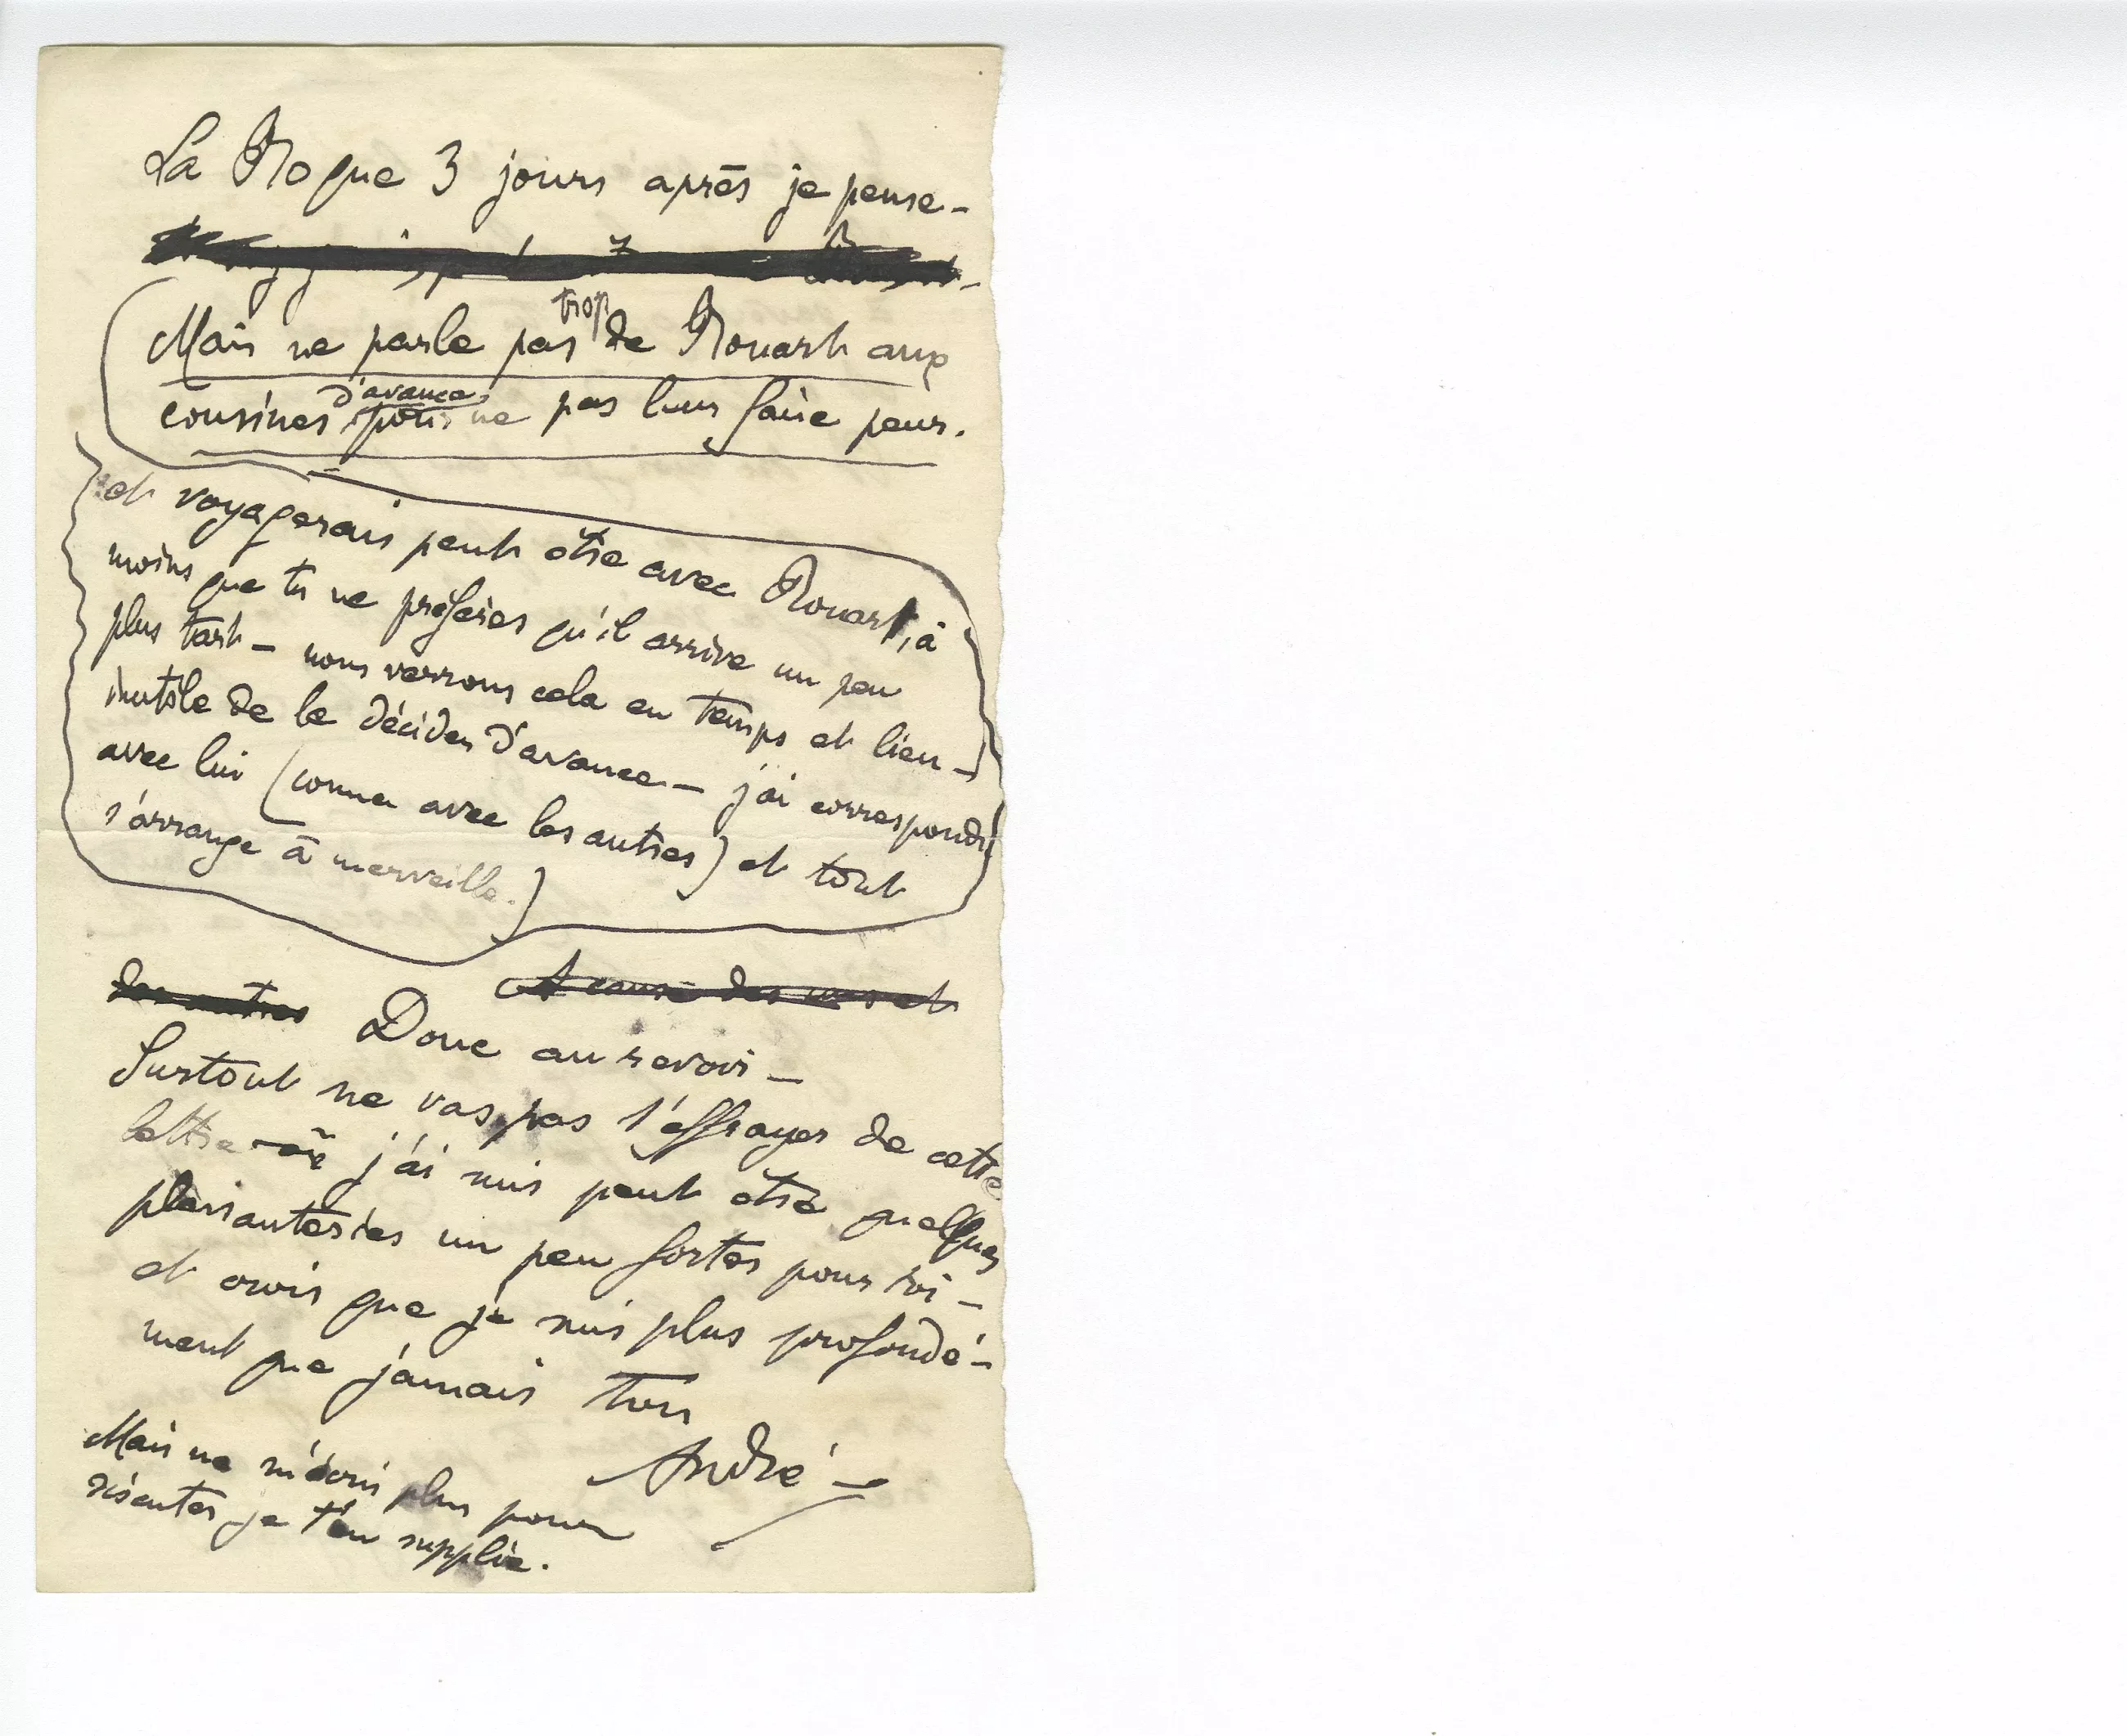 La Roque 3 jours après je pense –
Mais ne parle pas trop de Rouart aux
cousines d'avance, pour ne pas leur faire peur.
et voyagerais peut être avec Rouart, à
moins que tu ne préfères qu'il arrive un peu
plus tart – nous verrons cela en temps et lieu –
inutile de le décider d'avance – j'ai correspondu
avec lui (comme avec les autres) et tout
s'arrange à merveille.)
A cause des uns et
des autres Donc au revoir –
Surtout ne vas pas t'effrayer de cette
lettre où j'ai mis peut être quelques
plaisanteries un peu fortes pour toi –
et crois que je suis plus profondé-
ment que jamais ton
André –
Mais ne m'écris plus pour
discuter je t'en supplie.